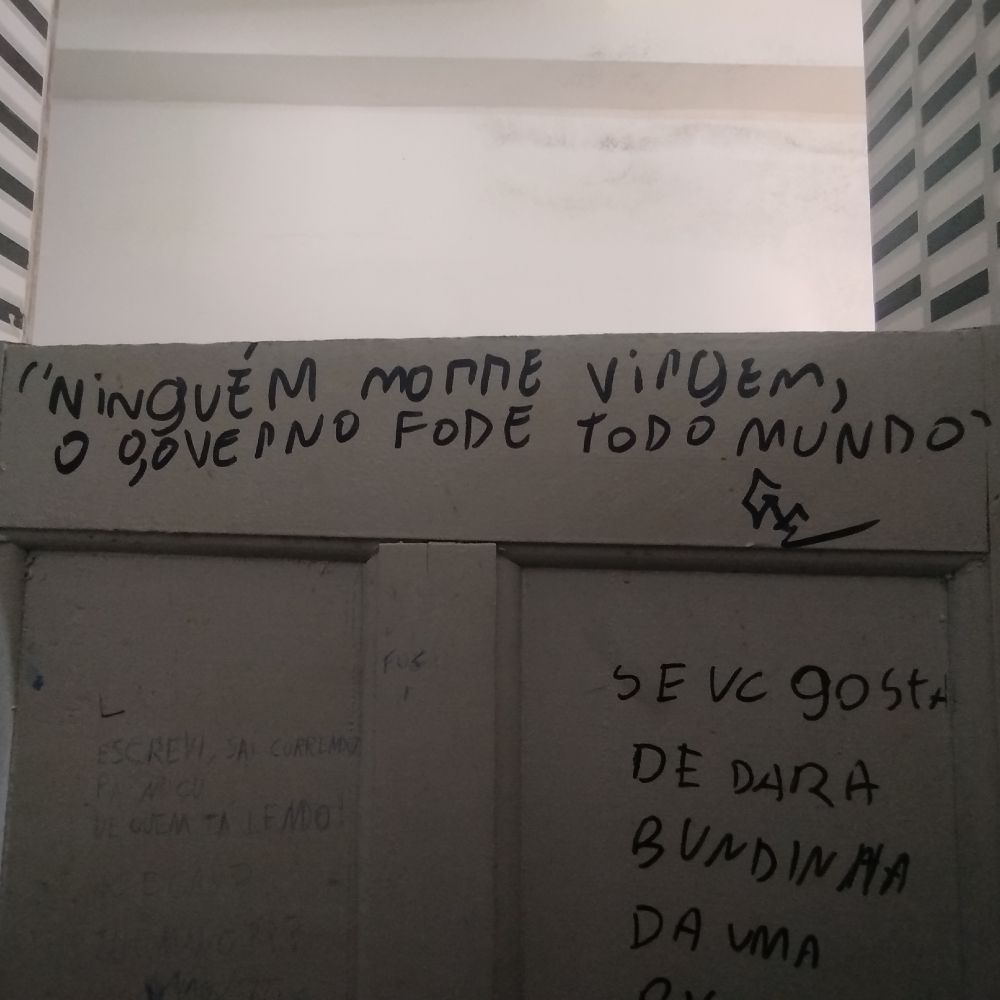 "NINGUÉM MORRE VIRGEM,
O GOVERNO FODE TODO MUNDO"
SE VC GOSTA
DE DAR A
BUNDINHA
DA UMA
FUS
ESCREVI, SAI CORRENDO
DE QUEM TÁ LENDO!